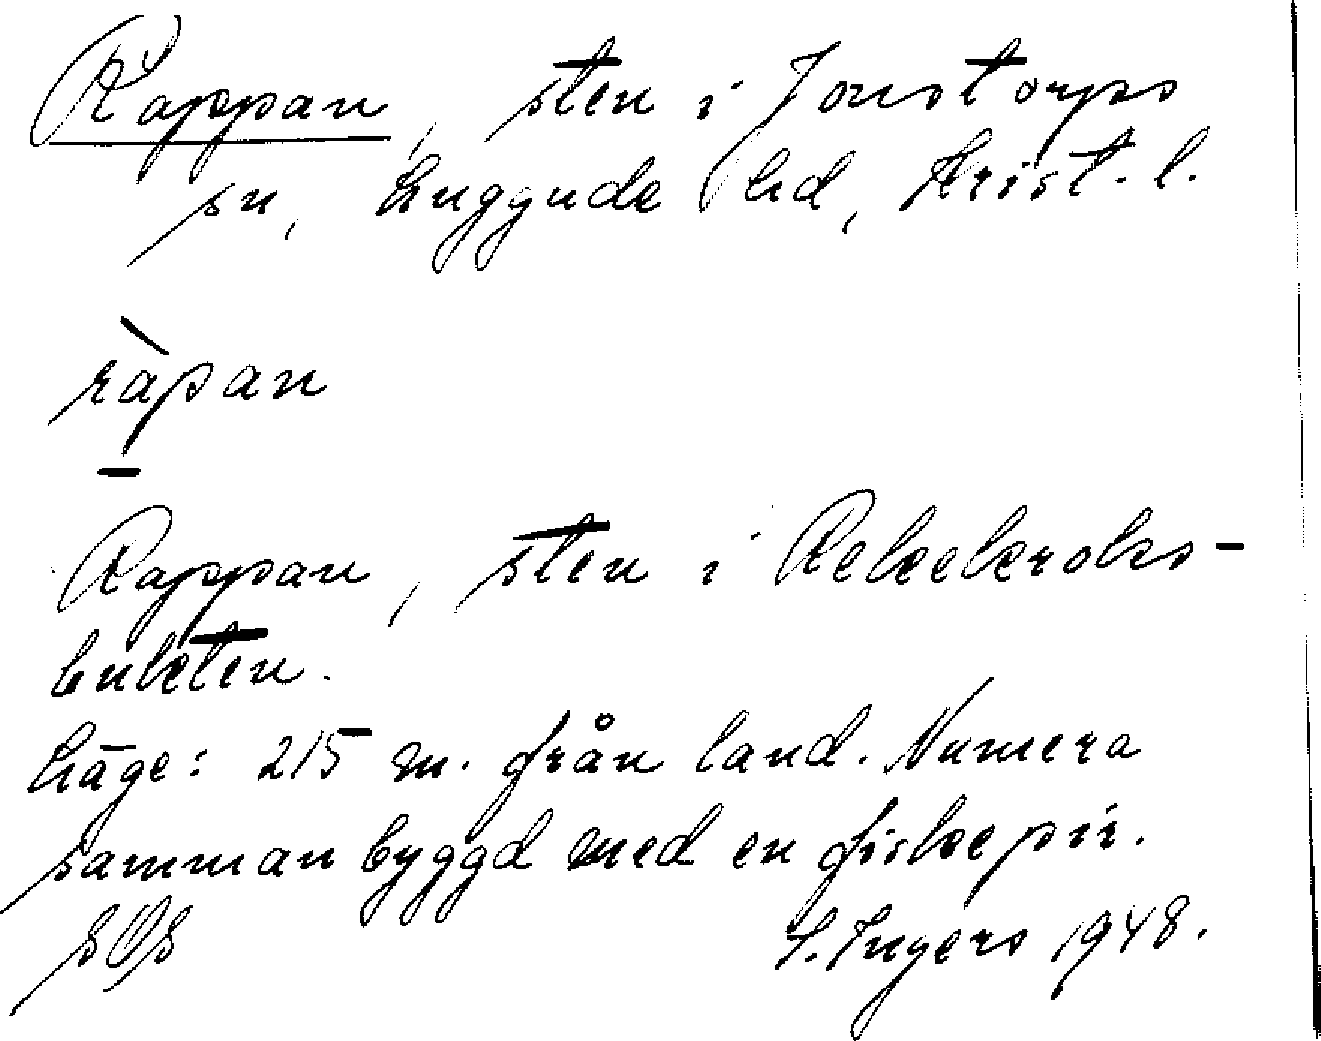 Rappan, sten i Jonstorps
sn, Luggude hd, Krist. l.
ràpan
Rappan, sten i Rekekroks-
bukten.
Läge: 215 m. från land. Numera
sammanbyggd med en fiskepir.
SOS I. Ingers 1948.